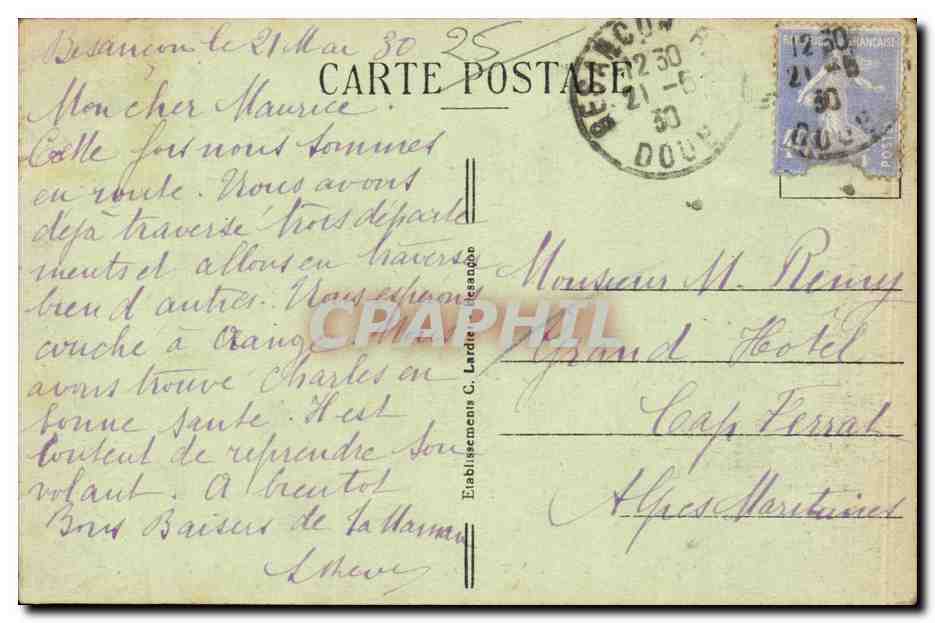 Besançon le 21 Mai 30
25
CARTE POSTALE
Mon cher Maurice.
Cette fois nous sommes
en route. Nous avons
déjà traversé trois départe
ments et allons en traverser
bien d'autres. Nous esperons
couché à Orange. Nous
avons trouvé Charles en
bonne santé. Il est
content de reprendre son
volant. A bientot
Bons Baisers de ta Maman
BESANCON
DOUBS
12 30
21 -5
30
12 30
21 -5
30
DOUBS
REPUBLIQUE FRANÇAISE
POSTES
Etablissements C. Lardier - Besançon
CPAPHIL
Monsieur M. Remy
Grand Hôtel
Cap Ferrat
Alpes Maritimes